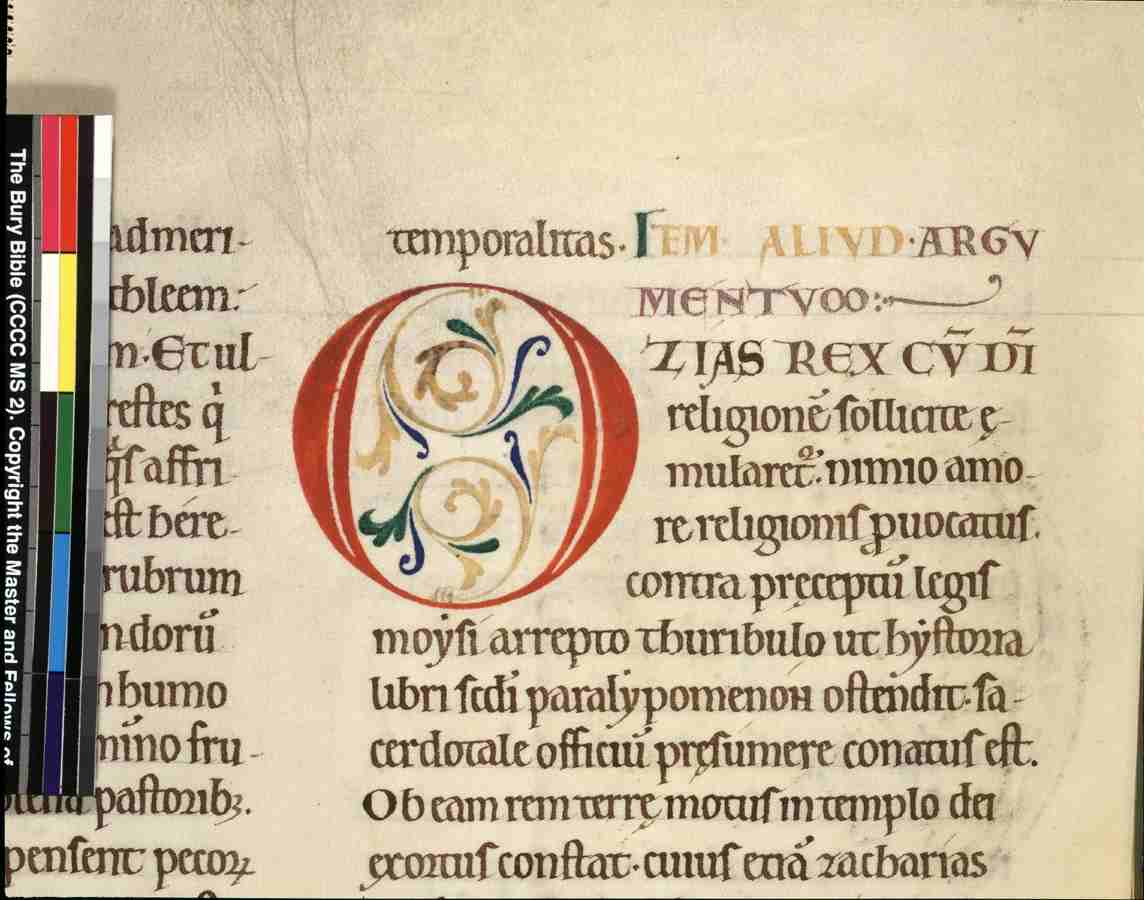 The Bury Bible (CCCC MS 2). Copyright the Master and Fellows of
admeri-
thleem:
m. Et ul-
restes q̇
affri-
est bere-
rubrum
ndorū
humo
mino fru-
pastorib;.
pensent pecoꝝ
temporalitas. ITEM ALIVD ARGV
MENTVOO:
OZIAS REX CV̄ DĪ
religionē sollicite ę-
mularet᷑. nimio amo-
re religionis ꝓuocatus.
contra pręceptū legis
moẏsi arrepto thuribulo ut hẏstoria
libri sc̄di paralẏpomenon ostendit. sa-
cerdotale officiū pręsumere conatus est.
Ob eam rem terrę motus in templo dei
exortus constat. cuius etiā zacharias